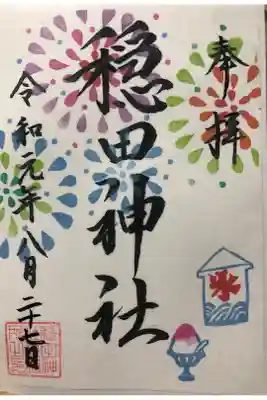 奉拝
穏田神社
令和元年八月二十七日
氷